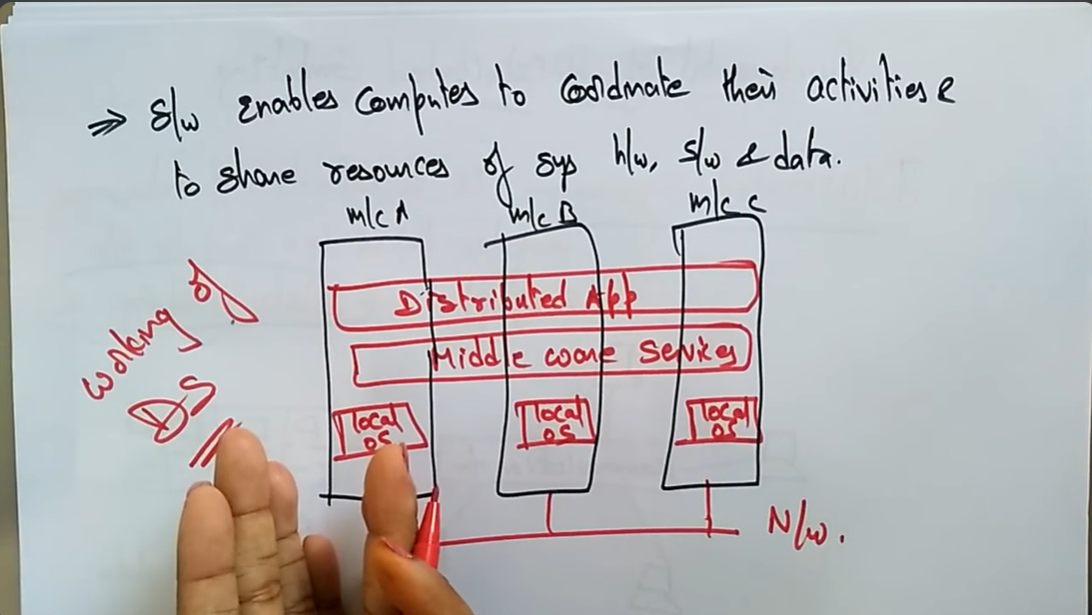 ⇒ S/w enables Computes to Coordmate their activities &
to share resources of sys h/w, s/w & data.
m/c A m/c B m/c C
Distributed App
Middle ware Services
local OS local OS local OS
working of
DS
N/w.